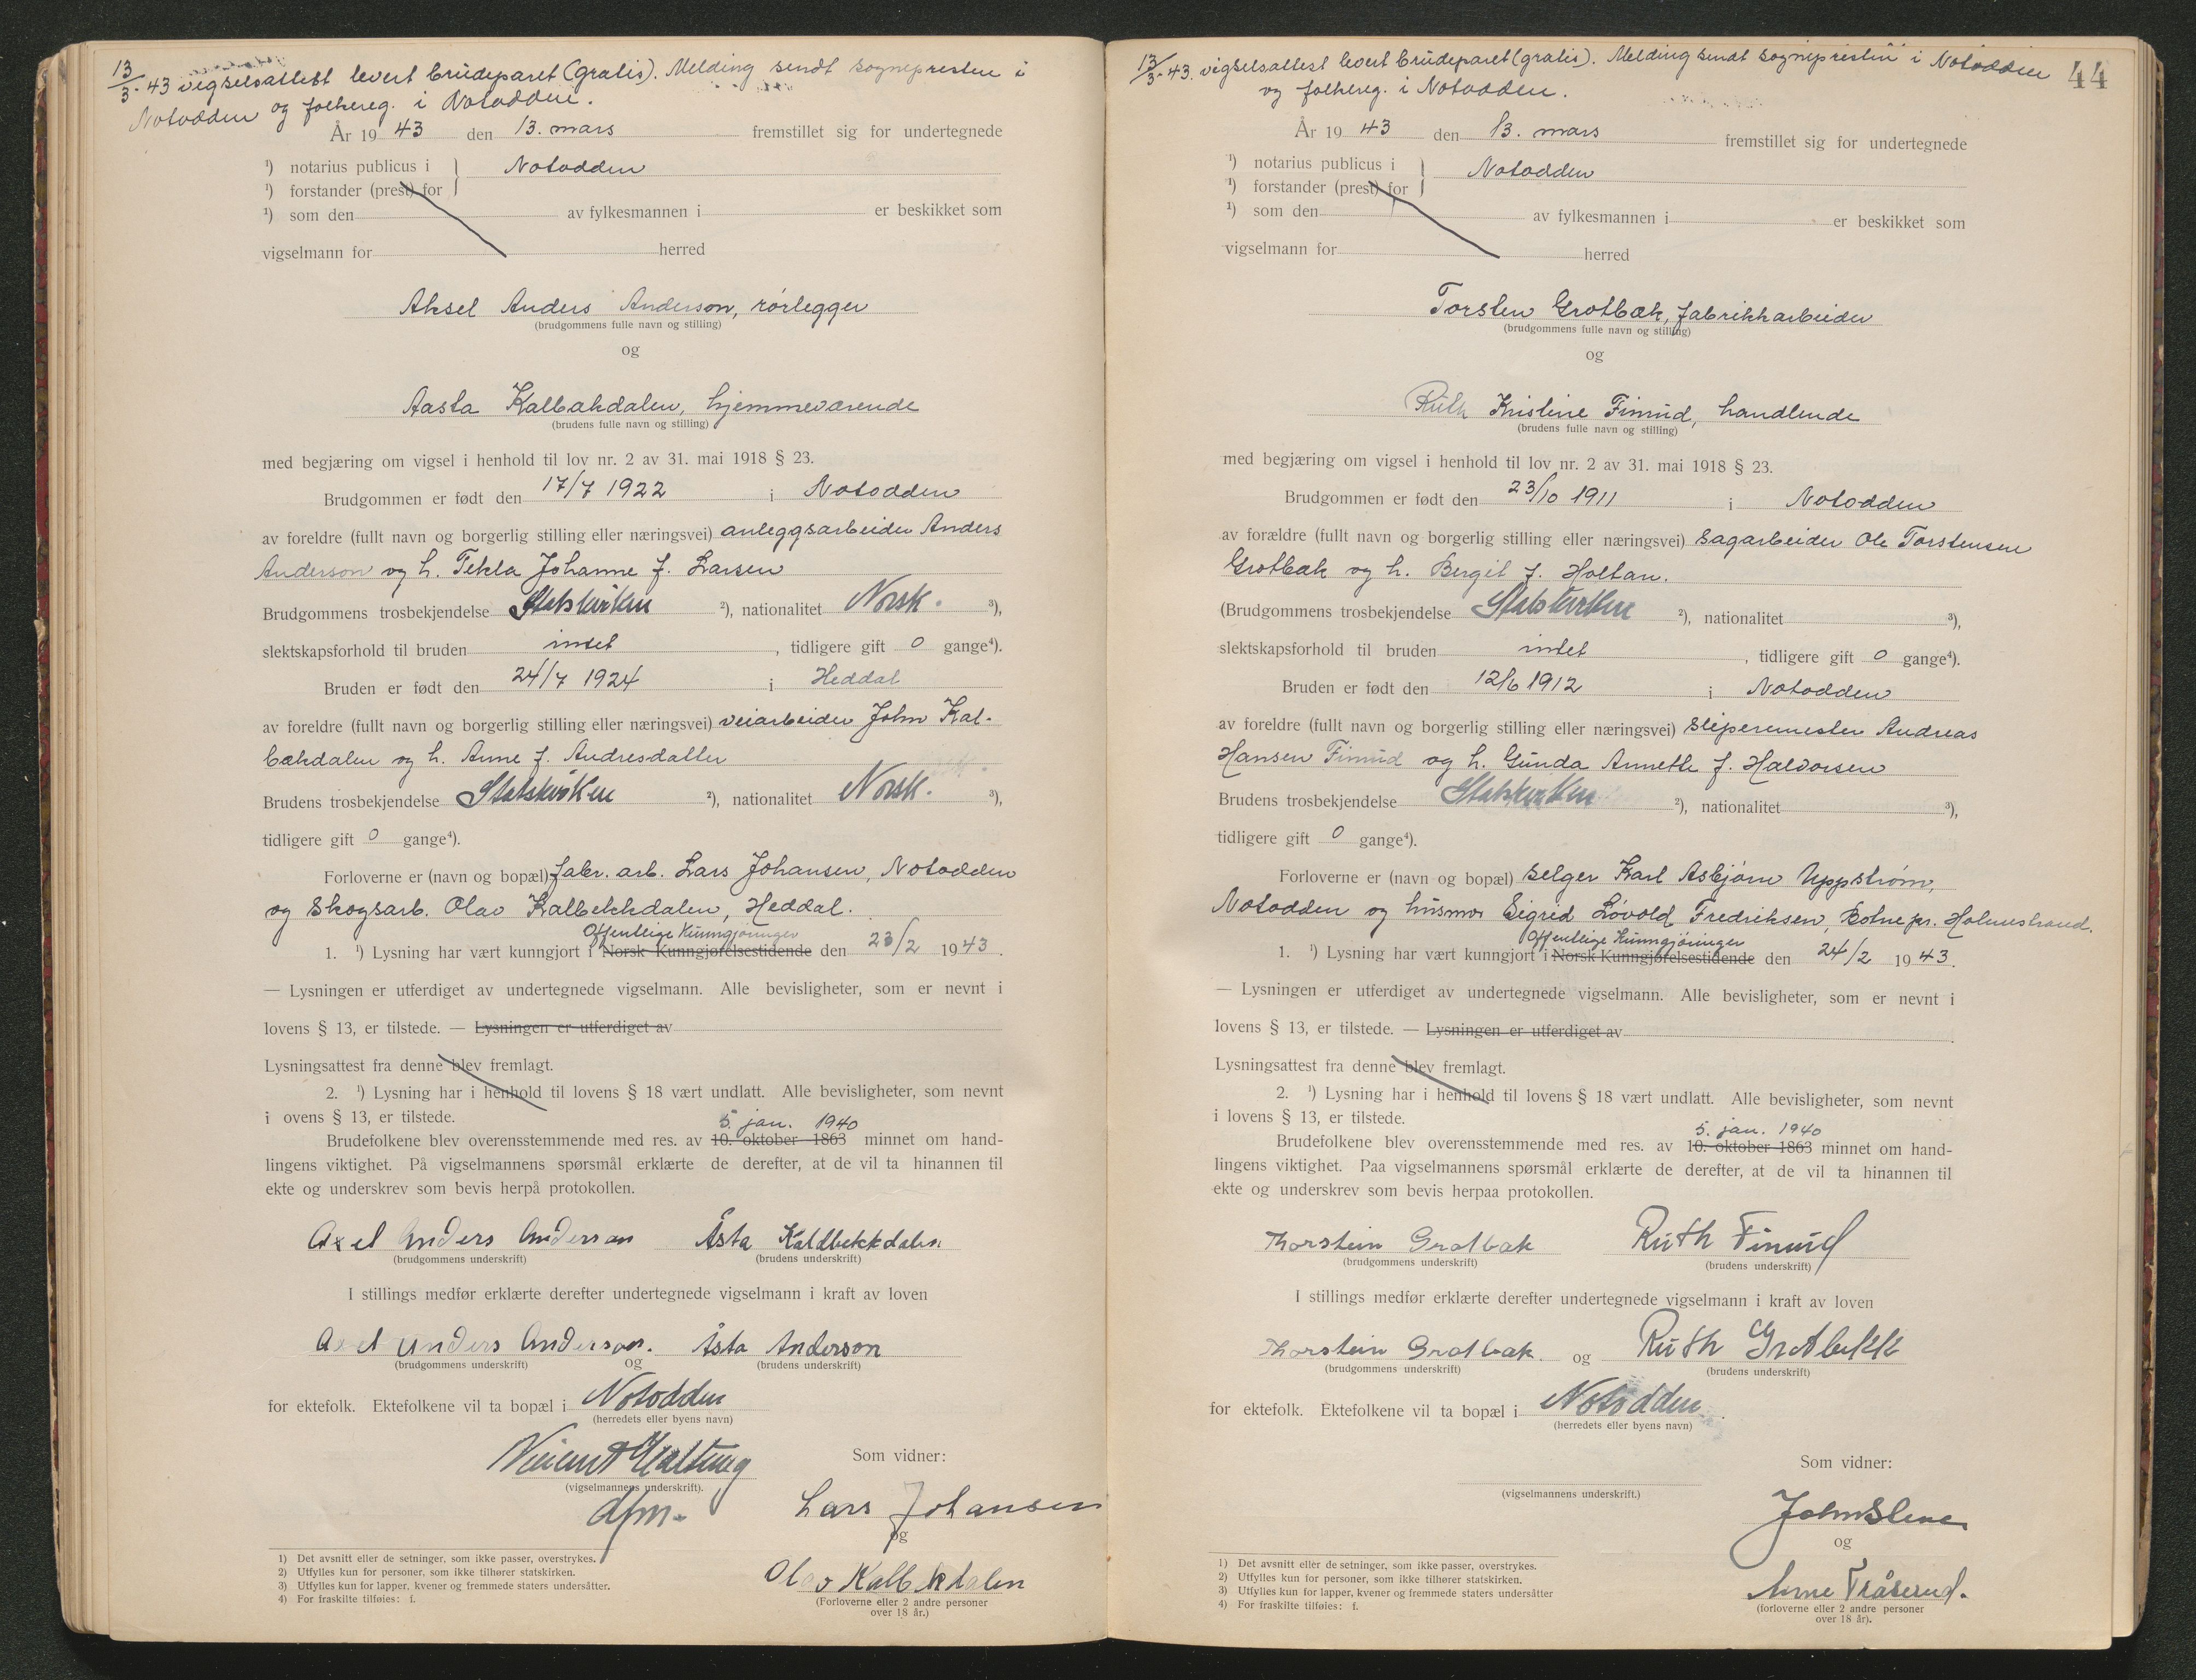 13/3-43 vigselsattest levert brudeparet (gratis). Melding sendt sognepresten i
Notodden og folkereg. i Notodden.
År 19 43 den 13. mars fremstillet sig for undertegnede
¹) notarius publicus i } Notodden
¹) forstander (prest) for
¹) som den av fylkesmannen i er beskikket som
vigselmann for herred
Aksel Anders Anderson, rørlegger
(brudgommens fulle navn og stilling)
og
Aasta Kalbakdalen, hjemmeværende
(brudens fulle navn og stilling)
med begjæring om vigsel i henhold til lov nr. 2 av 31. mai 1918 § 23.
Brudgommen er født den 17/7 1922 i Notodden
av foreldre (fullt navn og borgerlig stilling eller næringsvei) anleggsarbeider Anders
Anderson og h. Tekla Johanne f. Larsen
Brudgommens trosbekjendelse Statskirken ²), nationalitet Norsk. ³),
slektskapsforhold til bruden intet, tidligere gift 0 gange⁴).
Bruden er født den 24/7 1924 i Heddal
av foreldre (fullt navn og borgerlig stilling eller næringsvei) veiarbeider John Kal-
bækdalen og h. Anne f. Andresdatter
Brudens trosbekjendelse Statskirken ²), nationalitet Norsk. ³),
tidligere gift 0 gange⁴).
Forloverne er (navn og bopæl) fabr. arb. Lars Johansen, Notodden
og Skogsarb. Olav Kalbekkdalen, Heddal.
Offentlige Kunngjøringer
1. ¹) Lysning har vært kunngjort i Norsk Kunngjørelsestidende den 23/2 19 43.
— Lysningen er utferdiget av undertegnede vigselmann. Alle bevisligheter, som er nevnt i
lovens § 13, er tilstede. — Lysningen er utferdiget av
Lysningsattest fra denne blev fremlagt.
2. ¹) Lysning har i henhold til lovens § 18 vært undlatt. Alle bevisligheter, som nevnt
i ovens § 13, er tilstede.
5. jan. 1940
Brudefolkene blev overensstemmende med res. av 10. oktober 1863 minnet om hand-
lingens viktighet. På vigselmannens spørsmål erklærte de derefter, at de vil ta hinannen til
ekte og underskrev som bevis herpå protokollen.
Axel Anders Anderson Åsta Kaldbekkdalen
(brudgommens underskrift) (brudens underskrift)
I stillings medfør erklærte derefter undertegnede vigselmann i kraft av loven
Axel Anders Anderson. Åsta Anderson
(brudgommens underskrift) og (brudens underskrift)
for ektefolk. Ektefolkene vil ta bopæl i Notodden
(herredets eller byens navn)
Som vidner:
(vigselmannens underskrift).
dfm.
Lars Johansen
og
Olav Kalbekkdalen
(Forloverne eller 2 andre personer
over 18 år.)
1) Det avsnitt eller de setninger, som ikke passer, overstrykes.
2) Utfylles kun for personer, som ikke tilhører statskirken.
3) Utfylles kun for lapper, kvener og fremmede staters undersåtter.
4) For fraskilte tilføies: f.
44
13/3-43. vigselsattest levert brudeparet (gratis). Melding sendt sognepresten i Notodden
og folkereg. i Notodden.
År 19 43 den 13. mars fremstillet sig for undertegnede
¹) notarius publicus i } Notodden
¹) forstander (prest) for
¹) som den av fylkesmannen i er beskikket som
vigselmann for herred
Torsten Grotbæk, fabrikkarbeider
(brudgommens fulle navn og stilling)
og
Ruth Kristine Finnud, handlende
(brudens fulle navn og stilling)
med begjæring om vigsel i henhold til lov nr. 2 av 31. mai 1918 § 23.
Brudgommen er født den 23/10 1911 i Notodden
av forældre (fullt navn og borgerlig stilling eller næringsvei) Sagarbeider Ole Torstensen
Grotbæk og h. Bergit f. Holtan.
(Brudgommens trosbekjendelse Statskirken ²), nationalitet ³),
slektskapsforhold til bruden intet, tidligere gift 0 gange⁴).
Bruden er født den 12/6 1912 i Notodden
av foreldre (fullt navn og borgerlig stilling eller næringsvei) Sliperemester Andreas
Hansen Finnud og h. Gunda Annette f. Halvorsen
Brudens trosbekjendelse Statskirken ²), nationalitet ³),
tidligere gift 0 gange⁴).
Forloverne er (navn og bopæl) Selger Karl Asbjørn Uppstrøm,
Notodden og husmor Sigrid Løvold Fredriksen, Botne pr. Holmestrand.
Offentlige Kunngjøringer
1. ¹) Lysning har vært kunngjort i Norsk Kunngjørelsestidende den 24/2 19 43.
— Lysningen er utferdiget av undertegnede vigselmann. Alle bevisligheter, som er nevnt i
lovens § 13, er tilstede. — Lysningen er utferdiget av
Lysningsattest fra denne blev fremlagt.
2. ¹) Lysning har i henhold til lovens § 18 vært undlatt. Alle bevisligheter, som nevnt
i lovens § 13, er tilstede.
5. jan. 1940
Brudefolkene blev overensstemmende med res. av 10. oktober 1863 minnet om hand-
lingens viktighet. Paa vigselmannens spørsmål erklærte de derefter, at de vil ta hinannen til
ekte og underskrev som bevis herpaa protokollen.
Thorstein Grotbæk Ruth Finnud
(brudgommens underskrift) (brudens underskrift)
I stillings medfør erklærte derefter undertegnede vigselmann i kraft av loven
Thorstein Grotbæk. og Ruth Grotbekk
(brudgommens underskrift) (brudens underskrift)
for ektefolk. Ektefolkene vil ta bopæl i Notodden.
(herredets eller byens navn)
Som vidner:
(vigselmannens underskrift.)
John
og
Anne Tråserud.
(forloverne eller 2 andre personer
over 18 år).
1) Det avsnitt eller de setninger, som ikke passer, overstrykes.
2) Utfylles kun for personer, som ikke tilhører statskirken.
3) Utfylles kun for lapper, kvener og fremmede staters undersåtter
4) For fraskilte tilføies: f.